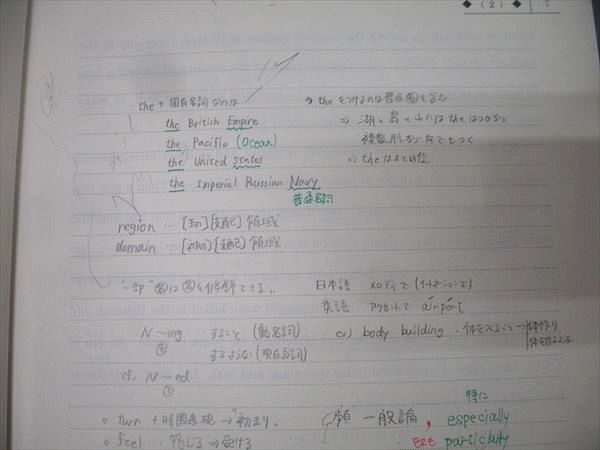 ◆ (2) ◆ 7
the + 固有名詞 なのは…
⇒ the をつけるのは普通名を含む
the British Empire
⇒ 湖、島、山には the はつかない。
the Pacific (Ocean)
複数形なら何でもつく
the United States
⇒ the は
the Imperial Russian Navy
普通名詞
region … [支配] 領域
domain … [支配] 領域
"一部" 名は名を修飾できる。
日本語 メロディで (イントネーションで)
英語 アクセントで airport
N~ing … すること (動名詞)
ex) body building
名 するような (現在分詞)
cf. N~ed
名
。turn + 時間表現 → "初まり"
一般論, especially
特に
。feel … 感じる → 受ける
particularly